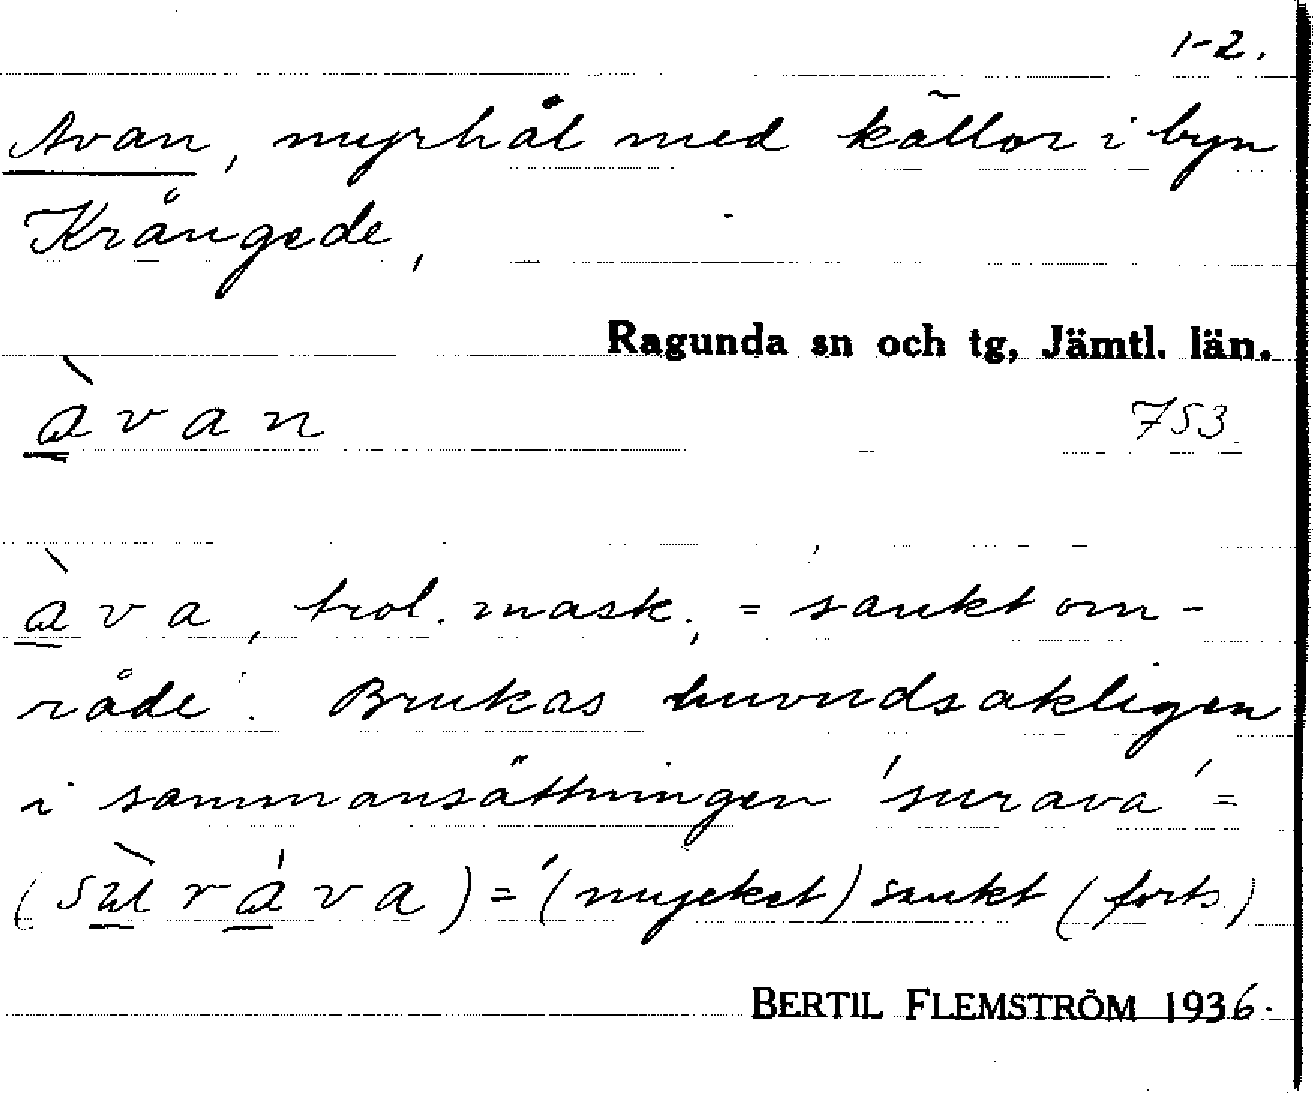 1-2.
Avan, myrhål med källor i byn
Krångede,
Ragunda sn och tg, Jämtl. län.
àvan
753
àva, trol. mask., = sankt om-
råde'. Brukas huvudsakligen
i sammansättningen 'surava' =
(sùráva) = '(mycket) sankt (forts)
BERTIL FLEMSTRÖM 1936.